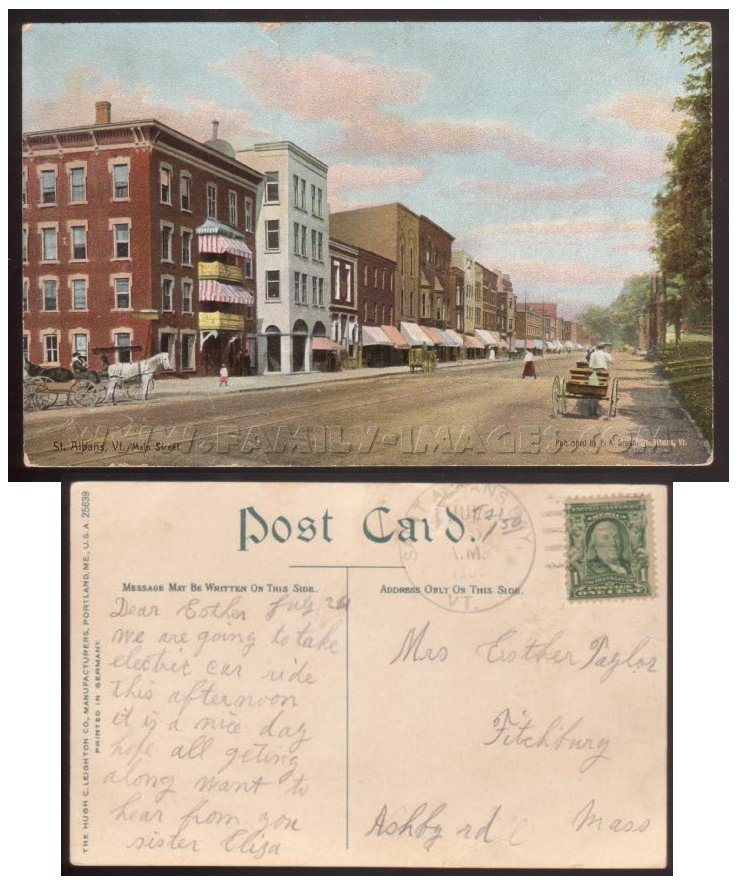 St. Albans, Vt. Main Street.
WWW.FAMILY-IMAGES.COM
St. Albans, Vt.
THE HUGH C. LEIGHTON CO., MANUFACTURERS, PORTLAND, ME., U.S.A. 25639
PRINTED IN GERMANY.
Post Card.
MESSAGE MAY BE WRITTEN ON THIS SIDE.
ADDRESS ONLY ON THIS SIDE.
A.M.
VT.
1
ONE CENT
Dear Esther July
we are going to take
electric car ride
this afternoon
it is a nice day
hope all geting
along want to
hear from you
sister Eliza
Mrs Esther Taylor
Fitchburg
Ashby rd
Mass